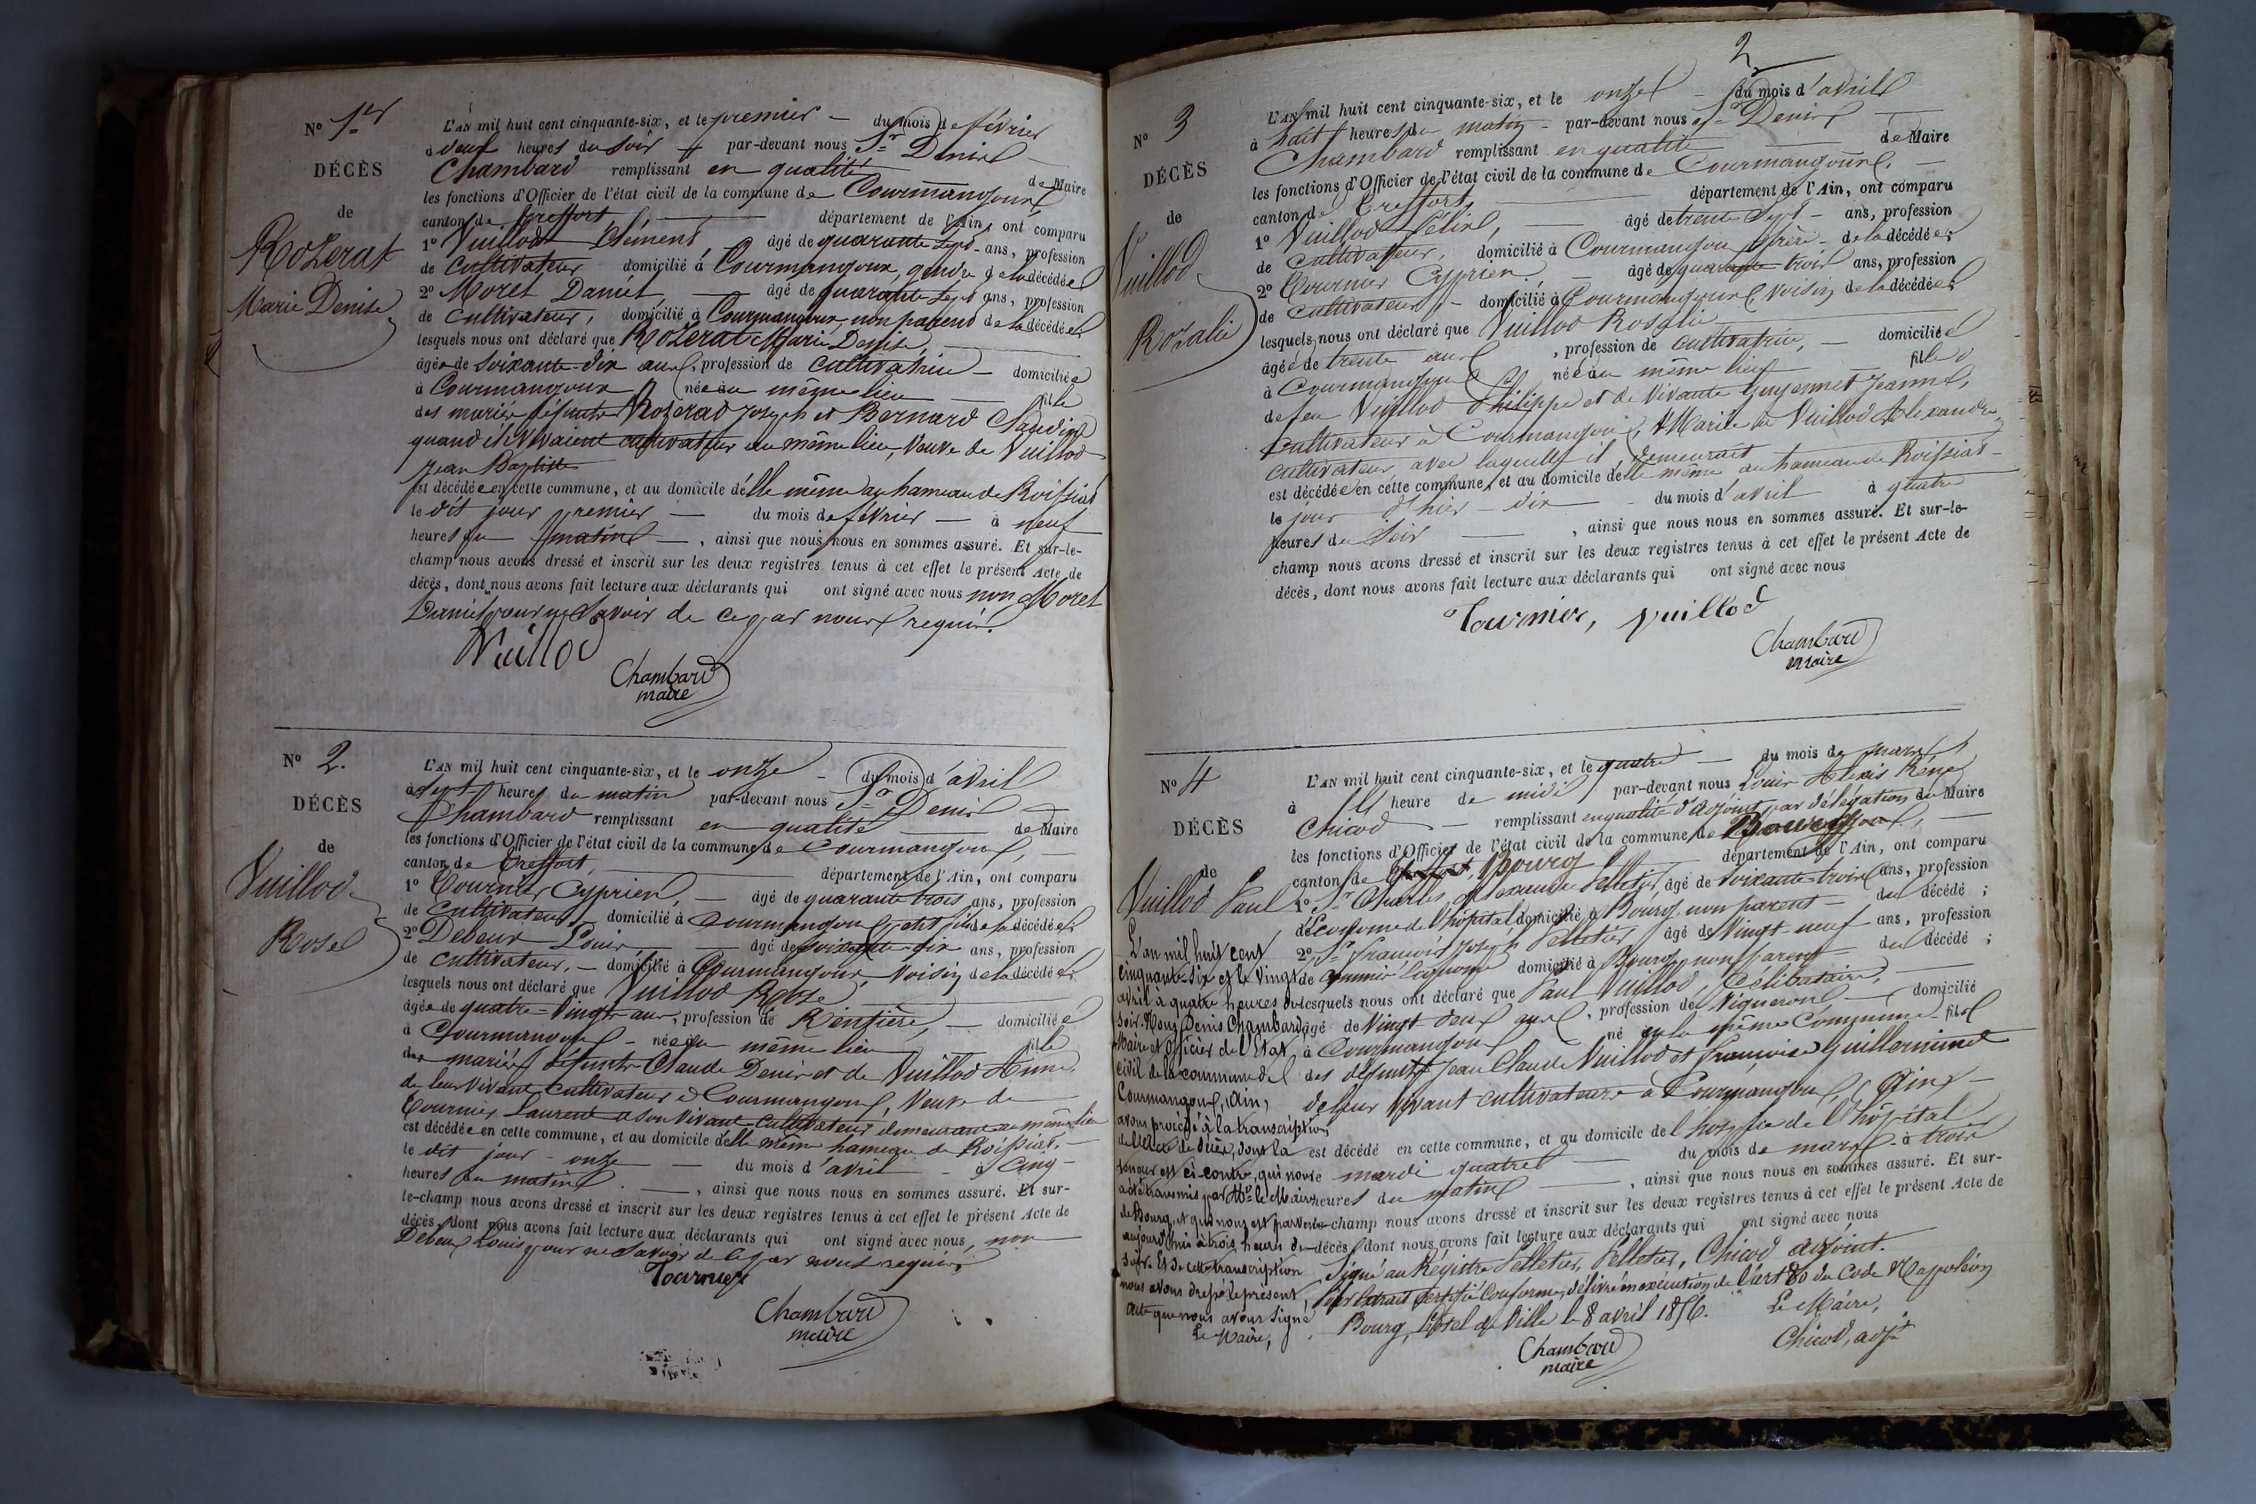 No 1er
DÉCÈS
de
Rozerat
Marie Denise
L'AN mil huit cent cinquante-six, et le premier du mois de février
à deux heures du soir par-devant nous Sr Denis
Chambard remplissant en qualité de Maire
les fonctions d'Officier de l'état civil de la commune de Courmangoux
canton de Treffort, département de l'Ain, ont comparu
1o Vuillod Clément âgé de quarante sept ans, profession
de cultivateur domicilié à Courmangoux, gendre de la décédée
2o Moret Daniel âgé de quarante sept ans, profession
de cultivateur, domicilié à Courmangoux, non parent de la décédée
lesquels nous ont déclaré que Rozerat Marie Denise
âgée de soixante-dix ans, profession de cultivatrice domiciliée
à Courmangoux née au même lieu fille
des mariés défunts Rozerat Joseph et Bernard Claudine
quand ils vivaient cultivateurs au même lieu, veuve de Vuillod
Jean Baptiste
est décédée en cette commune, et au domicile d'elle même au hameau de Roissiat
le dit jour premier du mois de février à neuf
heures du matin, ainsi que nous nous en sommes assuré. Et sur-le-
champ nous avons dressé et inscrit sur les deux registres tenus à cet effet le présent Acte de
décès, dont nous avons fait lecture aux déclarants qui ont signé avec nous non Moret
Daniel pour ne savoir de ce par nous requis.
Vuillod
Chambard
maire
No 2.
DÉCÈS
de
Vuillod
Rose
L'AN mil huit cent cinquante-six, et le onze du mois d'avril
à sept heures du matin par-devant nous Sr Denis
Chambard remplissant en qualité de Maire
les fonctions d'Officier de l'état civil de la commune de Courmangoux,
canton de Treffort, département de l'Ain, ont comparu
1o Tournier Cyprien, âgé de quarante trois ans, profession
de cultivateur, domicilié à Courmangoux, petit fils de la décédée;
2o Debeur Louis âgé de soixante-six ans, profession
de cultivateur, domicilié à Courmangoux, voisin de la décédée;
lesquels nous ont déclaré que Vuillod Rose
âgée de quatre-vingts ans, profession de Rentière, domiciliée
à Courmangoux née au même lieu fille
des mariés défunts Claude Denis et de Vuillod Anne
de leur vivant cultivateurs à Courmangoux, veuve de
Tournier Laurent à son vivant cultivateur demeurant au même lieu
est décédée en cette commune, et au domicile d'elle même hameau de Roissiat,
le dit jour onze du mois d'avril à cinq
heures du matin, ainsi que nous nous en sommes assuré. Et sur-
le-champ nous avons dressé et inscrit sur les deux registres tenus à cet effet le présent Acte de
décès, dont nous avons fait lecture aux déclarants qui ont signé avec nous, non
Debeur Louis pour ne savoir de ce par nous requis
Tournier
Chambard
maire
2
No 3
DÉCÈS
de
Vuillod
Rosalie
L'AN mil huit cent cinquante-six, et le onze du mois d'avril
à huit heures du matin par-devant nous Sr Denis
Chambard remplissant en qualité de Maire
les fonctions d'Officier de l'état civil de la commune de Courmangoux.
canton de Treffort, département de l'Ain, ont comparu
1o Vuillod Félix, âgé de trente sept ans, profession
de cultivateur, domicilié à Courmangoux, frère de la décédée;
2o Tournier Cyprien âgé de quarante trois ans, profession
de cultivateur domicilié à Courmangoux, voisin de la décédée
lesquels nous ont déclaré que Vuillod Rosalie
âgée de trente ans, profession de cultivatrice, domiciliée
à Courmangoux née au même lieu fille
de feu Vuillod Philippe et de vivante Guyennet Jeanne,
cultivateurs à Courmangoux, Mariée à Vuillod Alexandre
cultivateur avec laquelle il demeurait
est décédée en cette commune, et au domicile d'elle même au hameau de Roissiat
le jour d'hier dix du mois d'avril à quatre
heures du soir, ainsi que nous nous en sommes assuré. Et sur-le-
champ nous avons dressé et inscrit sur les deux registres tenus à cet effet le présent Acte de
décès, dont nous avons fait lecture aux déclarants qui ont signé avec nous
Tournier, Vuillod
Chambard
maire
No 4
DÉCÈS
de
Vuillod Paul
L'AN mil huit cent cinquante-six, et le quatre du mois de mars
à heure de midi par-devant nous Louis Alexis René
Chicod remplissant en qualité d'adjoint par délégation du Maire
les fonctions d'Officier de l'état civil de la commune de Bourg,
canton de Bourg département de l'Ain, ont comparu
1o Sr Charles Alexandre Pelletier, âgé de soixante-trois ans, profession
d'Économe de l'hôpital domicilié à Bourg, non parent du décédé;
2o Sr François Joseph Pelletier âgé de vingt-neuf ans, profession
de commis Économe domicilié à Bourg, non parent du décédé;
lesquels nous ont déclaré que Paul Vuillod, Célibataire,
âgé de vingt-deux ans, profession de Vigneron domicilié
à Courmangoux né en la même Commune fils
des défunts Jean Claude Vuillod et Françoise Guillerminet
de leur vivant cultivateurs à Courmangoux, Ain,
est décédé en cette commune, et au domicile de l'hospice de l'hôpital
mardi quatre du mois de mars à trois
heures du matin, ainsi que nous nous en sommes assuré. Et sur-
le-champ nous avons dressé et inscrit sur les deux registres tenus à cet effet le présent Acte de
décès, dont nous avons fait lecture aux déclarants qui ont signé avec nous
Signé au Régistre Pelletier, Pelletier, Chicod adjoint.
Pour Extrait certifié conforme, délivré en exécution de l'art 80 du Code Napoléon
Bourg, hôtel de Ville le 8 avril 1856. Le Maire,
Chicod, adjt
Chambard
maire
L'an mil huit cent
cinquante-six et le vingt
avril à quatre heures du
soir. Nous Denis Chambard
Maire et Officier de l'Etat
civil de la commune de
Courmangoux, Ain,
avons procédé à la transcription
de l'acte de décès, dont la
teneur est ci-contre, qui nous
a été transmis par Mr le Maire
de Bourg, et qui nous est parvenu
aujourd'hui à trois heures du
soir. Et de cette transcription
nous avons dressé le présent
acte que nous avons signé
Le Maire,